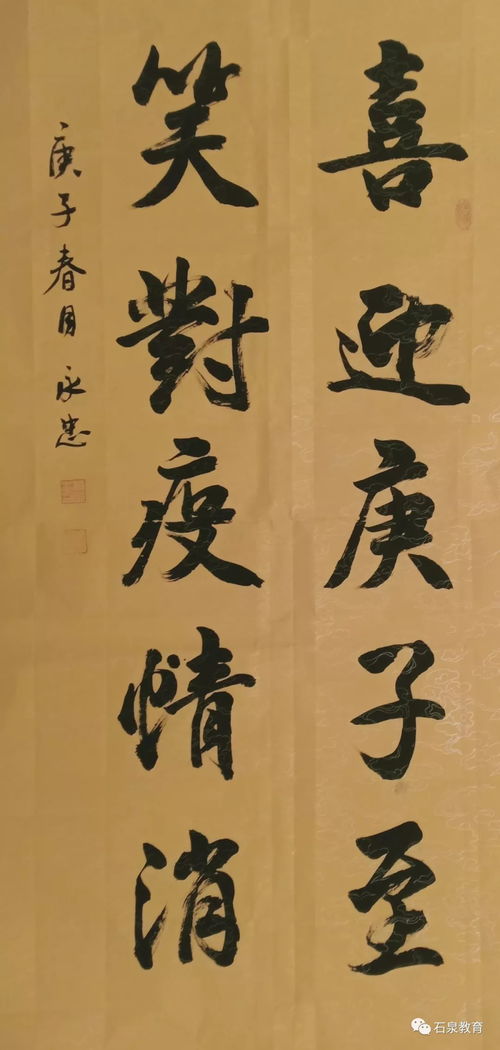 喜迎庚子至
笑對疫情消
庚子春月永忠
石泉教育